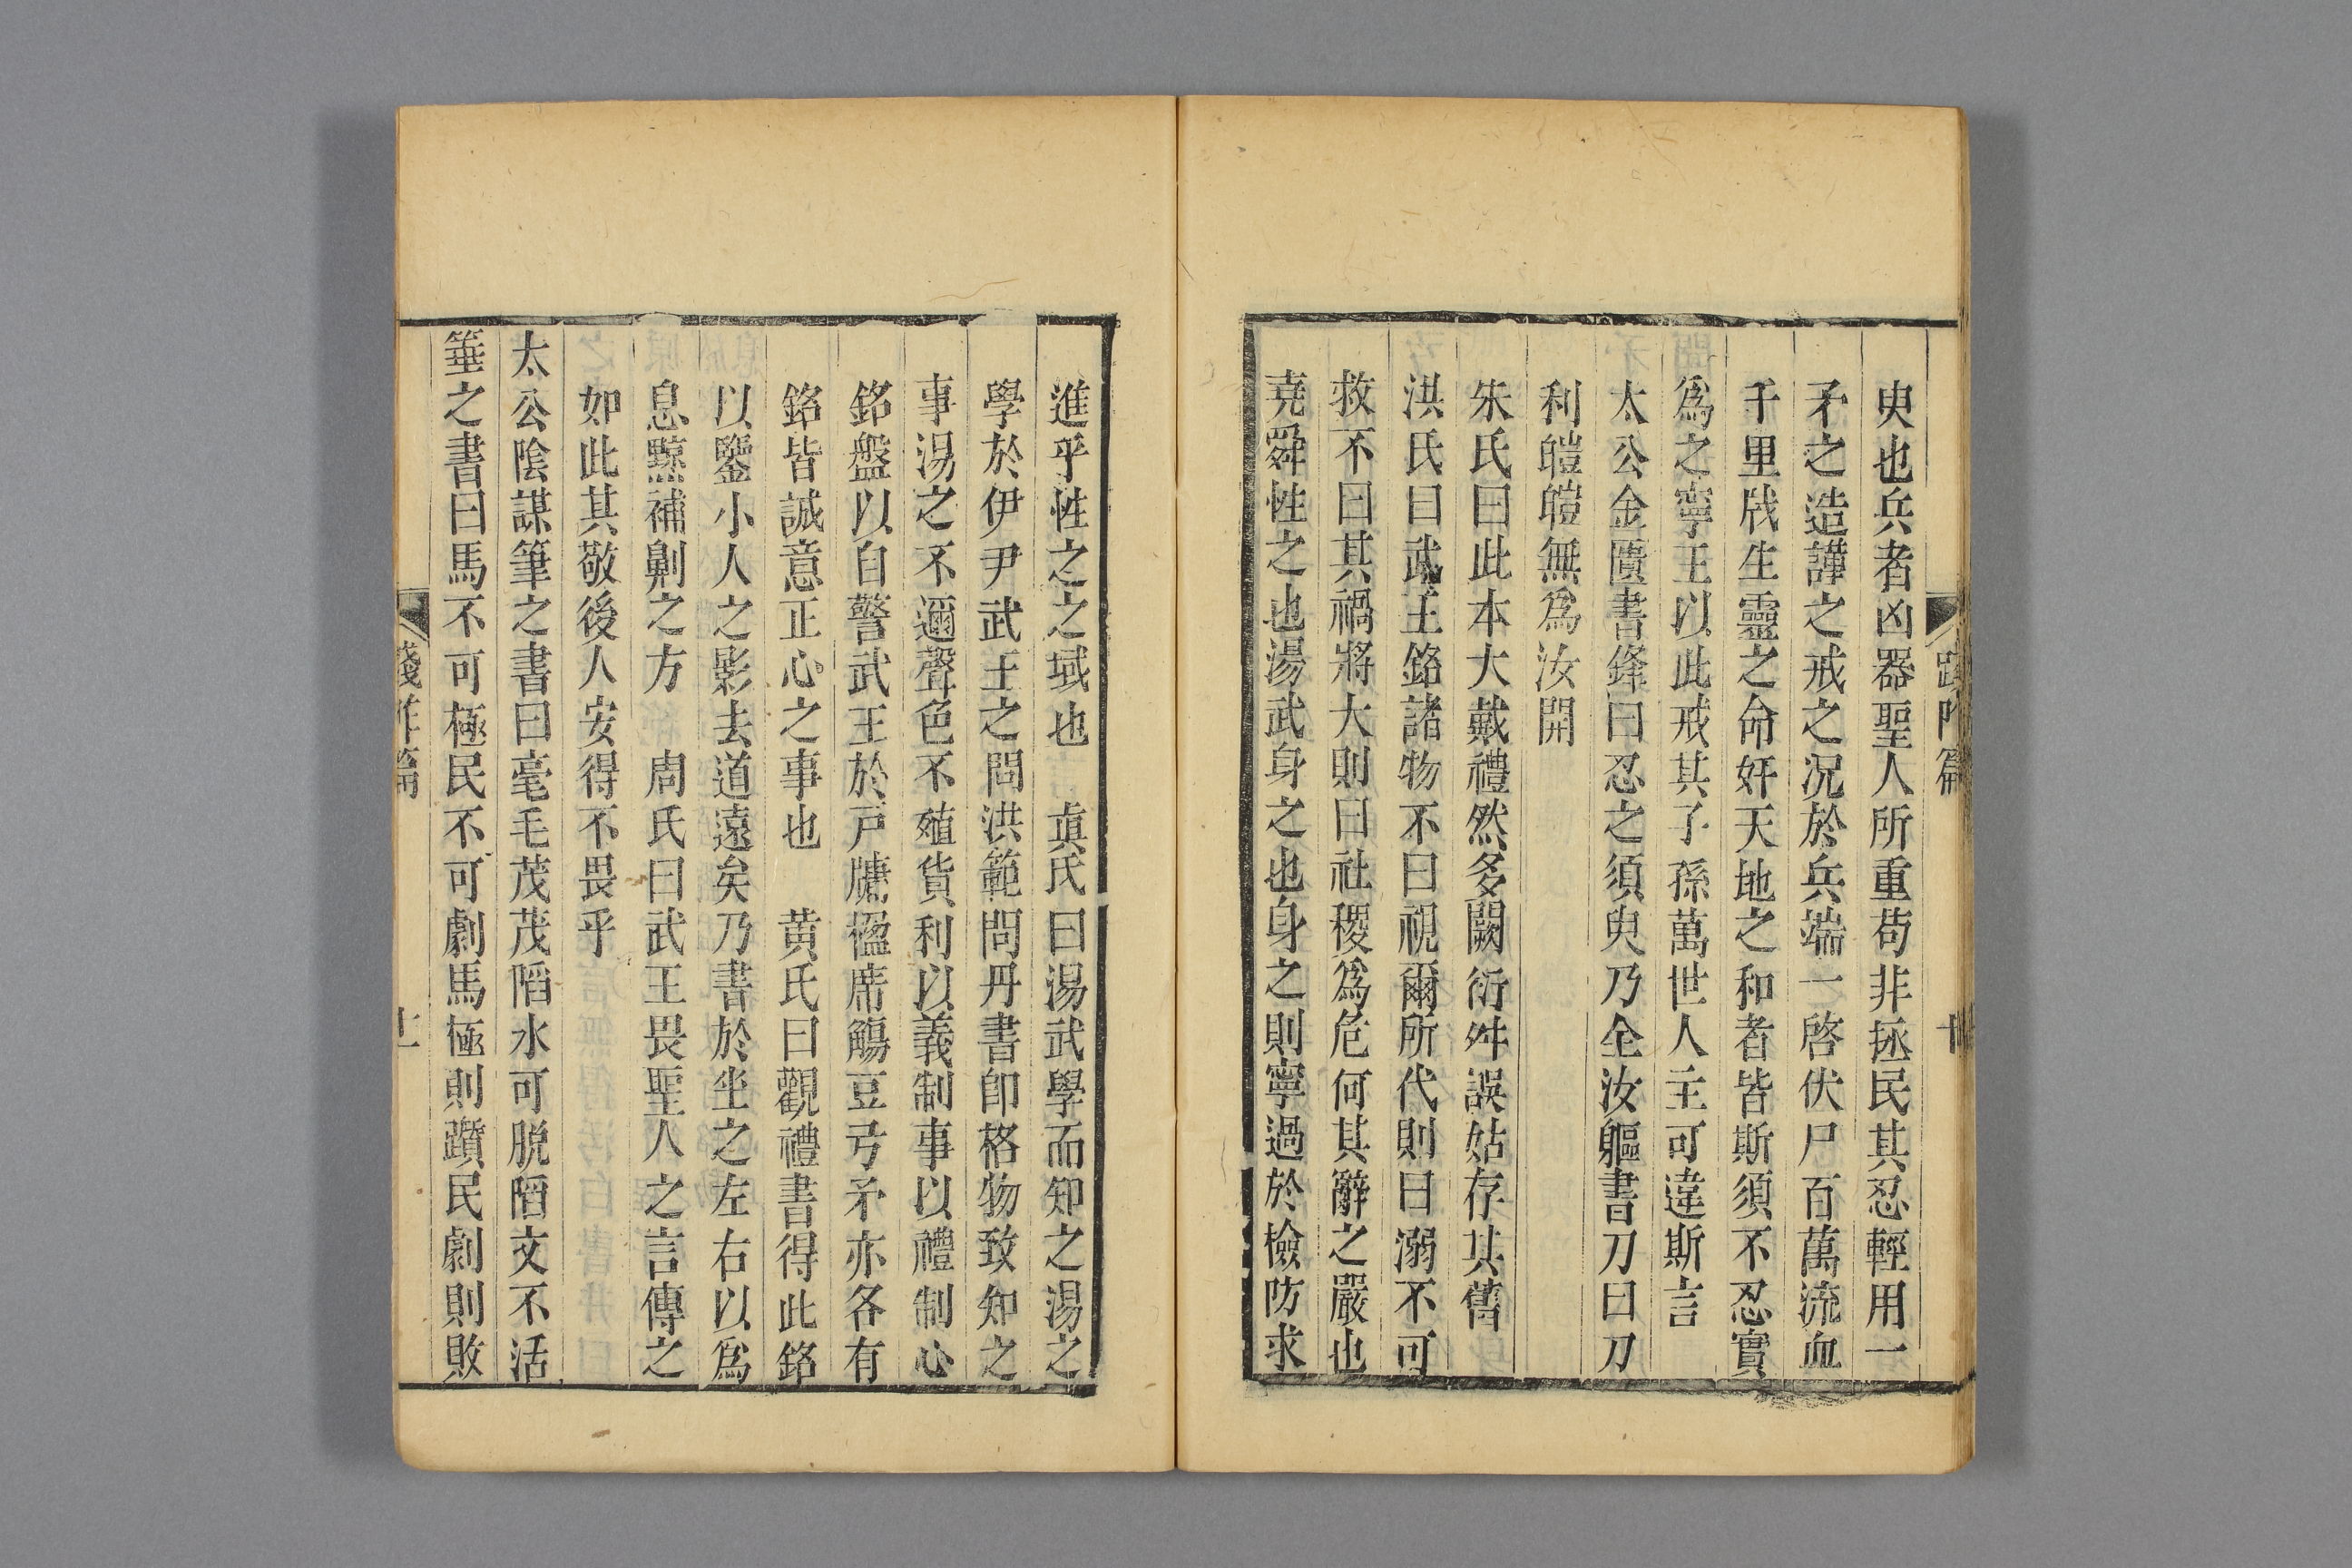 踐阼篇
十
臾也兵者凶器聖人所重苟非拯民其忍輕用一
矛之造謹之戒之況於兵端一啓伏尸百萬流血
千里戕生靈之命奸天地之和者皆斯須不忍實
爲之寧王以此戒其子孫萬世人主可違斯言
太公金匱書鋒曰忍之須臾乃全汝軀書刀曰刀
利皚皚無爲汝開
朱氏曰此本大戴禮然多闕衍舛誤姑存其舊
洪氏曰武王銘諸物不曰視爾所代則曰溺不可
救不曰其禍將大則曰社稷爲危何其辭之嚴也
堯舜性之也湯武身之也身之則寧過於檢防求
進乎性之之域也　眞氏曰湯武學而知之湯之
學於伊尹武王之問洪範問丹書卽格物致知之
事湯之不邇聲色不殖貨利以義制事以禮制心
銘盤以自警武王於戸牖楹席觴豆弓矛亦各有
銘皆誠意正心之事也　黄氏曰觀禮書得此銘
以鑒小人之影去道遠矣乃書於坐之左右以爲
息黥補劓之方　周氏曰武王畏聖人之言傳之
如此其敬後人安得不畏乎
太公陰謀筆之書曰毫毛茂茂陷水可脱陷文不活
箠之書曰馬不可極民不可劇馬極則躓民劇則敗
踐阼篇
十一